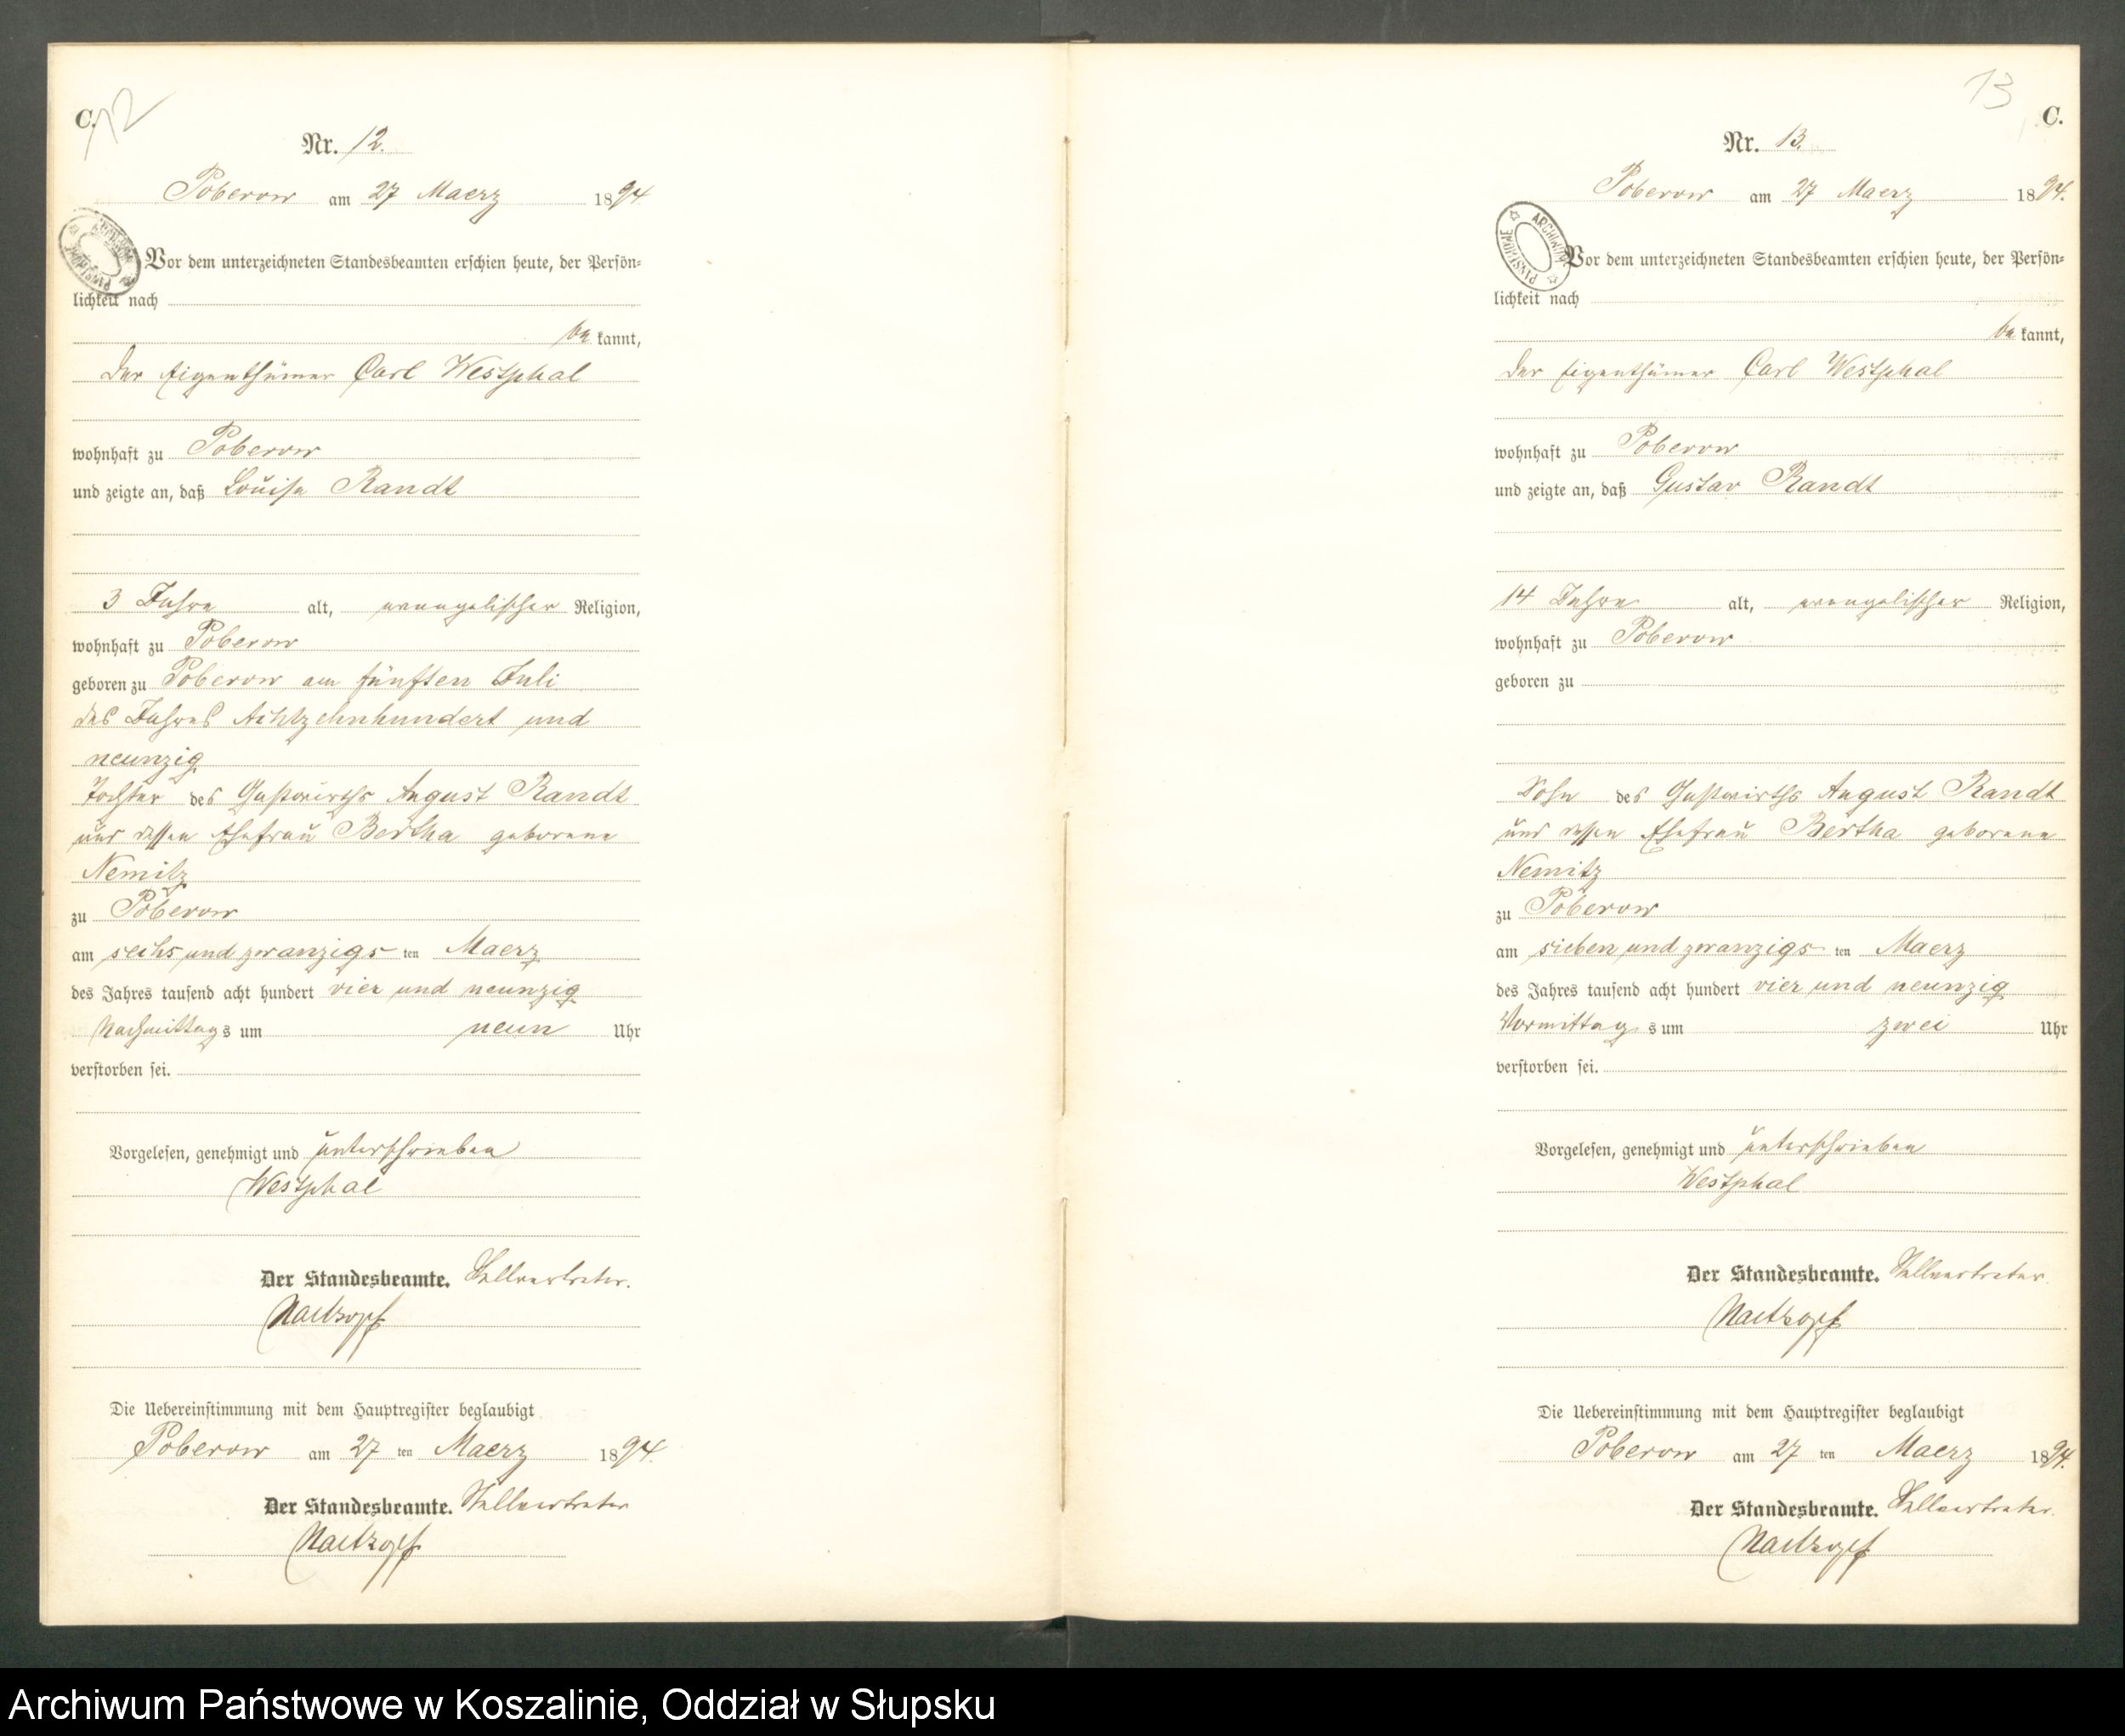 C.
12
Nr. 12.
Poberow am 27 Maerz 1894
Vor dem unterzeichneten Standesbeamten erschien heute, der Persön-
lichkeit nach
be kannt,
der Eigenthümer Carl Westphal
wohnhaft zu Poberow
und zeigte an, daß Louise Randt
3 Jahre alt, evangelischer Religion,
wohnhaft zu Poberow
geboren zu Poberow am fünften Juli
des Jahres Achtzehnhundert und
neunzig
Tochter des Gastwirths August Randt
und dessen Ehefrau Bertha geborene
Nemitz
zu Poberow
am sechs und zwanzigs ten Maerz
des Jahres tausend acht hundert vier und neunzig
Nachmittags um neun Uhr
verstorben sei.
Vorgelesen, genehmigt und unterschrieben
Westphal
Der Standesbeamte. Stellvertreter.
Die Uebereinstimmung mit dem Hauptregister beglaubigt
Poberow am 27 ten Maerz 1894.
Der Standesbeamte. Stellvertreter
13
C.
Nr. 13.
Poberow am 27 Maerz 1894.
ARCHIWUM PAŃSTWOWE
Vor dem unterzeichneten Standesbeamten erschien heute, der Persön-
lichkeit nach
be kannt,
der Eigenthümer Carl Westphal
wohnhaft zu Poberow
und zeigte an, daß Gustav Randt
14 Jahre alt, evangelischer Religion,
wohnhaft zu Poberow
geboren zu
Sohn des Gastwirths August Randt
und dessen Ehefrau Bertha geborene
Nemitz
zu Poberow
am sieben und zwanzigs ten Maerz
des Jahres tausend acht hundert vier und neunzig
Vormittag s um zwei Uhr
verstorben sei.
Vorgelesen, genehmigt und unterschrieben
Westphal
Der Standesbeamte. Stellvertreter.
Die Uebereinstimmung mit dem Hauptregister beglaubigt
Poberow am 27 ten Maerz 1894.
Der Standesbeamte. Stellvertreter.
Archiwum Państwowe w Koszalinie, Oddział w Słupsku